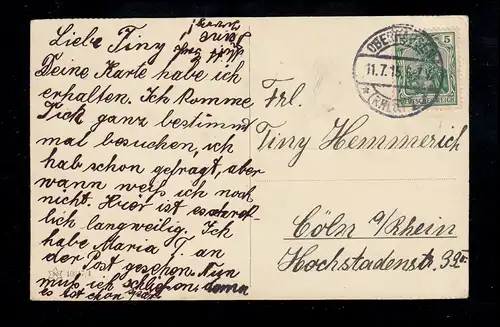 Liebe Tiny
Deine Karte habe ich
erhalten. Ich komme
Dich ganz bestimmt
mal besuchen, ich
hab schon gefragt, aber
wann weiß ich noch
nicht. Hier ist es schrek-
lich langweilig. Ich
habe Maria T. an
der Post gesehen. Nun
muß ich schließen, denn
es ist schon
5
11.7.15
Frl.
Tiny Hemmerich
Cöln a/Rhein
Hochstadenstr. 33